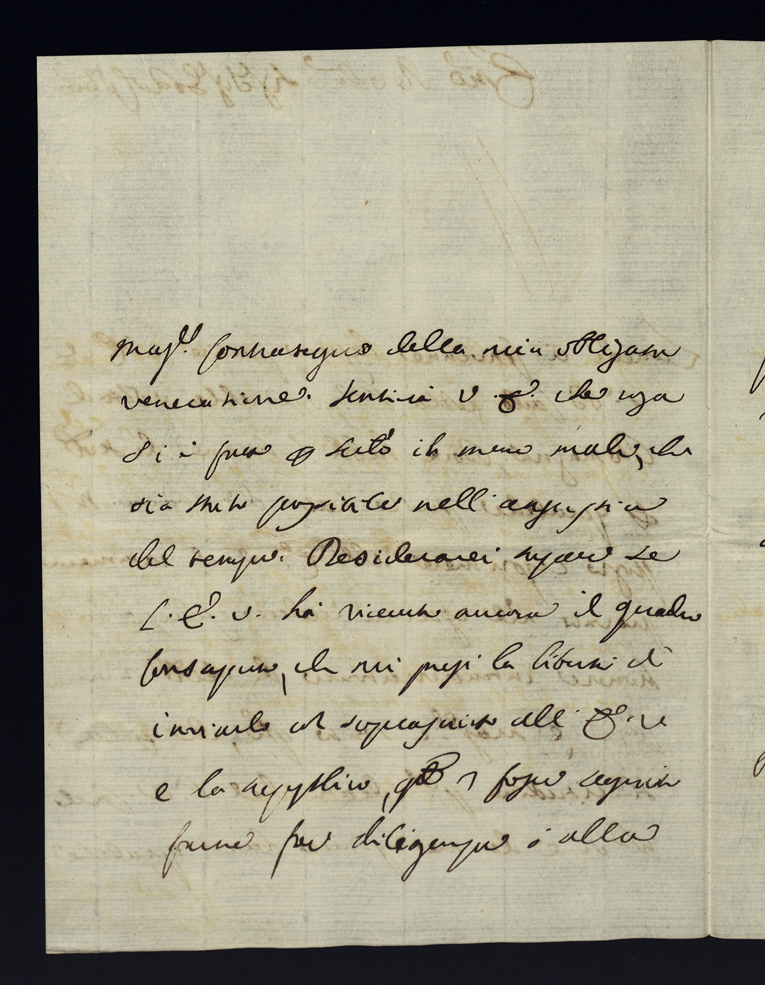 magr. contrasegno della mia obligata
venerazione. Sentirà V. E. che cosa
si è fatto il meno male, che
sia stato possibile nell'angustia
del tempo. Desidererei sapere se
l' E. V. ha ricevuto ancora il quadro
consaputo, che mi presi la libertà di
inviarle al soprascritto all' E. V.
e la supplico, fosse seguito
farne far diligenza ò alla